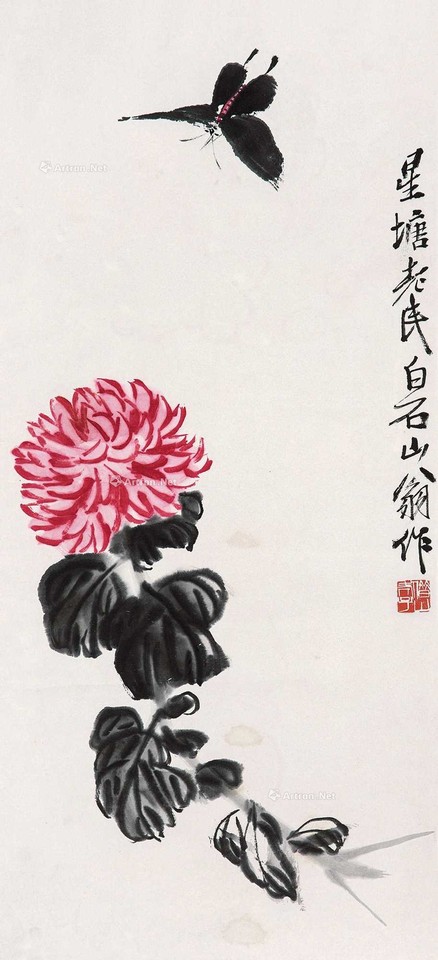 星塘老民白石山翁作
Artron.Net
Artron.Net
Artron.Net